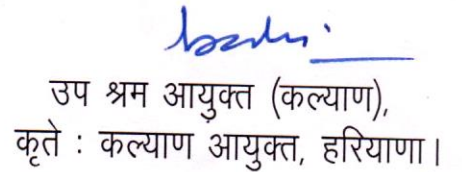 उप श्रम आयुक्त (कल्याण),
कृते : कल्याण आयुक्त, हरियाणा।